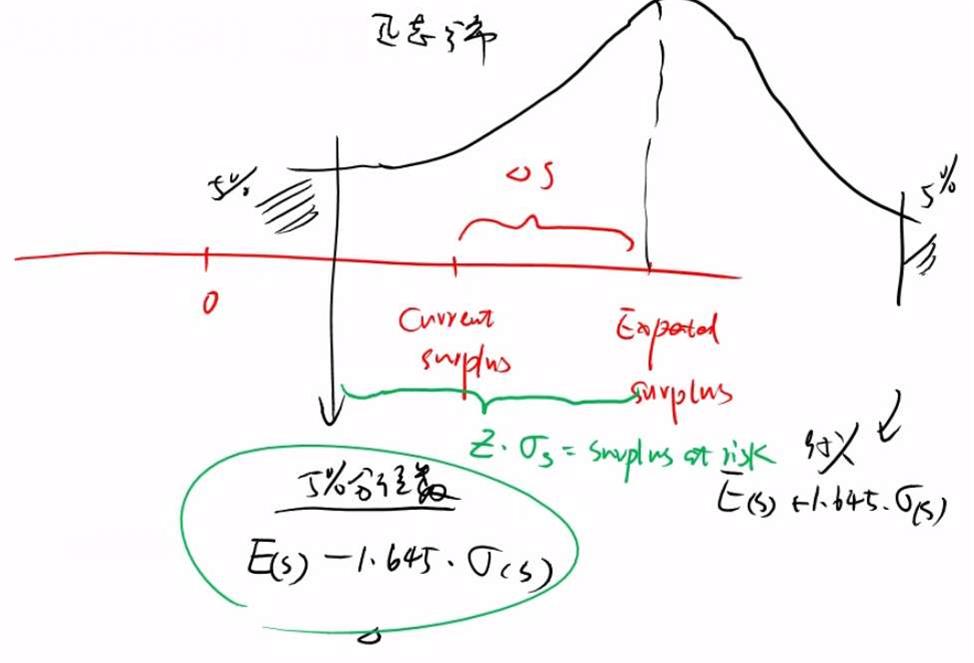 正态分布
5%
5%
△S
0
Current
surplus
Expected
surplus
Z·σs = surplus at risk
5%分位数
E(s) - 1.645·σ(s)
95%
E(s) + 1.645·σ(s)